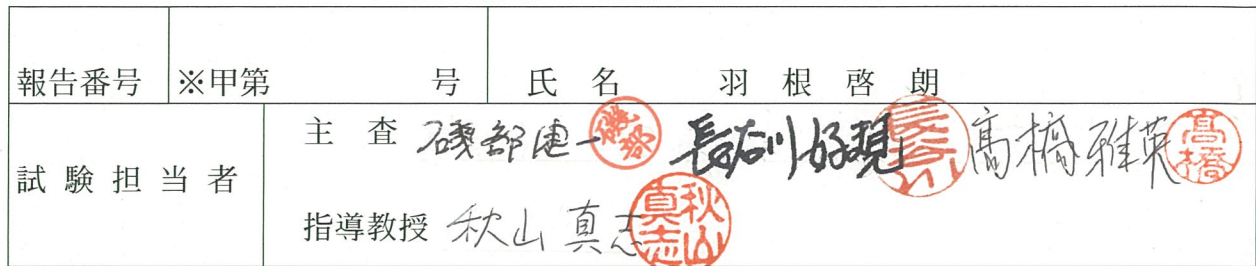 報告番号 ※甲第 号 氏名 羽根啓朗
試験担当者
主査 磯部健一 磯部 長谷川好規 高橋雅英 髙橋
指導教授 秋山真志 秋山真志